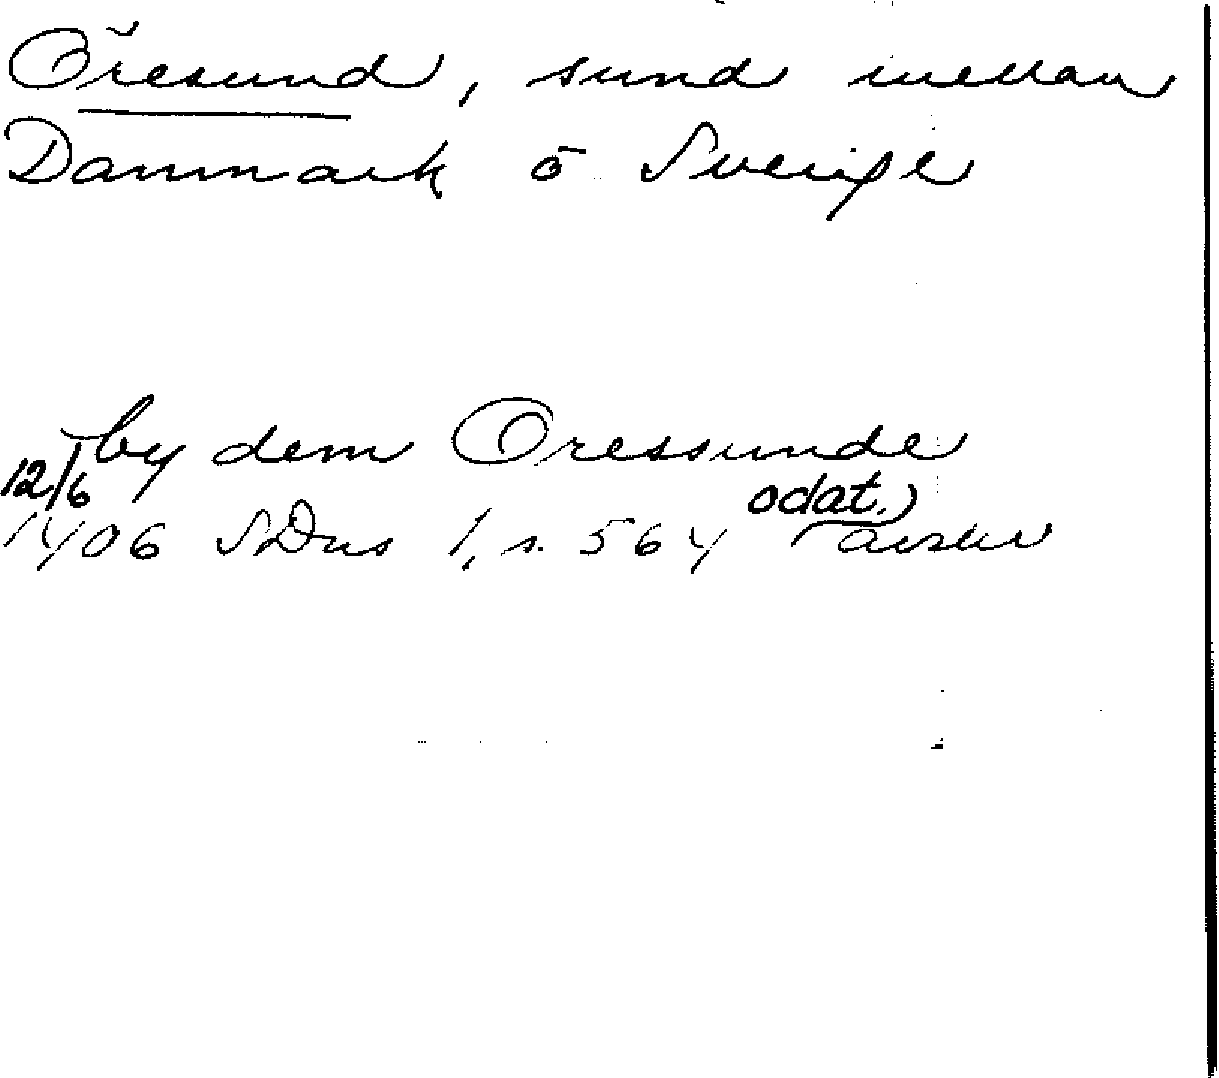 Öresund, sund mellan
Danmark o Sverige
by dem Oressunde
12/6 odat.
1406 SDns 1, s. 564 avskr